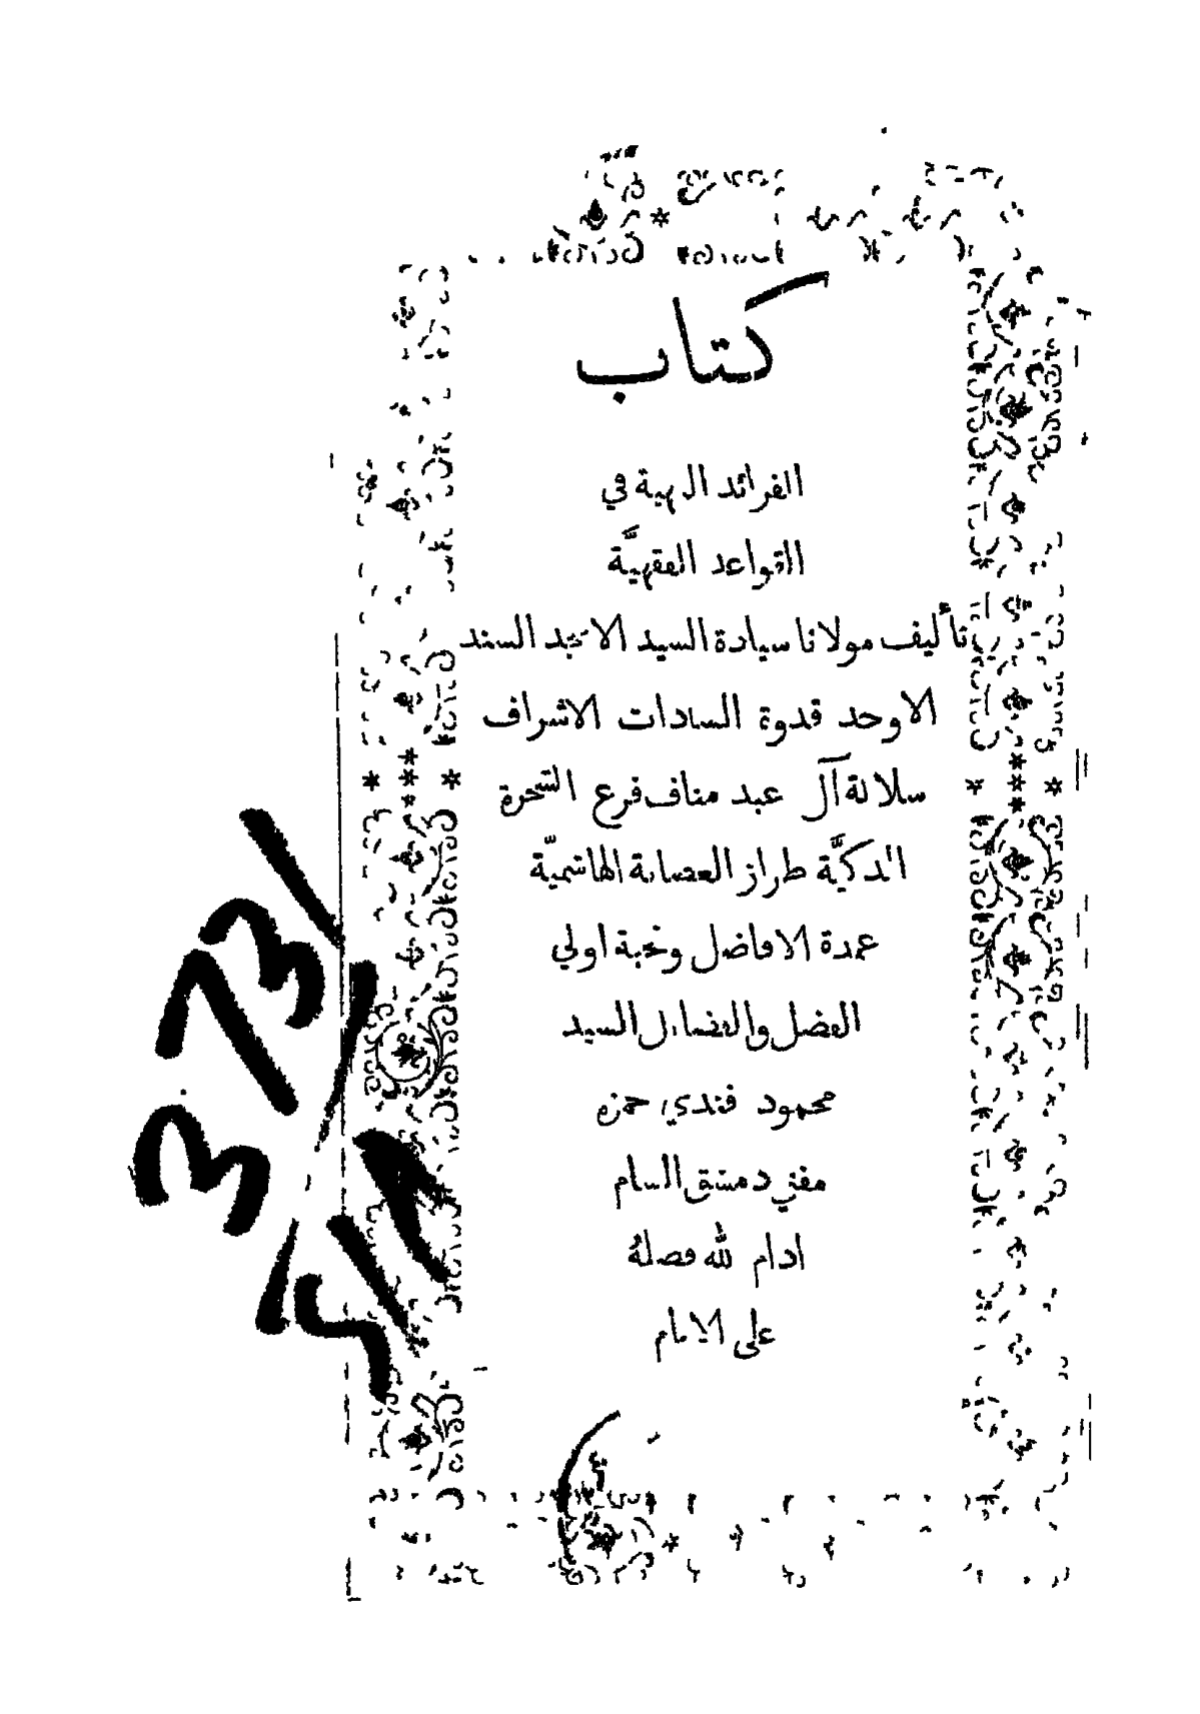 كتاب
الفرائد البهية في
القواعد الفقهيَّة
تأليف مولانا سيادة السيد الامجد السند
الاوحد قدوة السادات الاشراف
سلالة آل عبد مناف فرع الشجرة
الذكيَّة طراز العصابة الهاشميَّة
عمدة الافاضل ونخبة اولي
الفضل والفضائل السيد
محمود فندي حمزه
مفتي دمشق الشام
ادام لله فضلهُ
على الانام